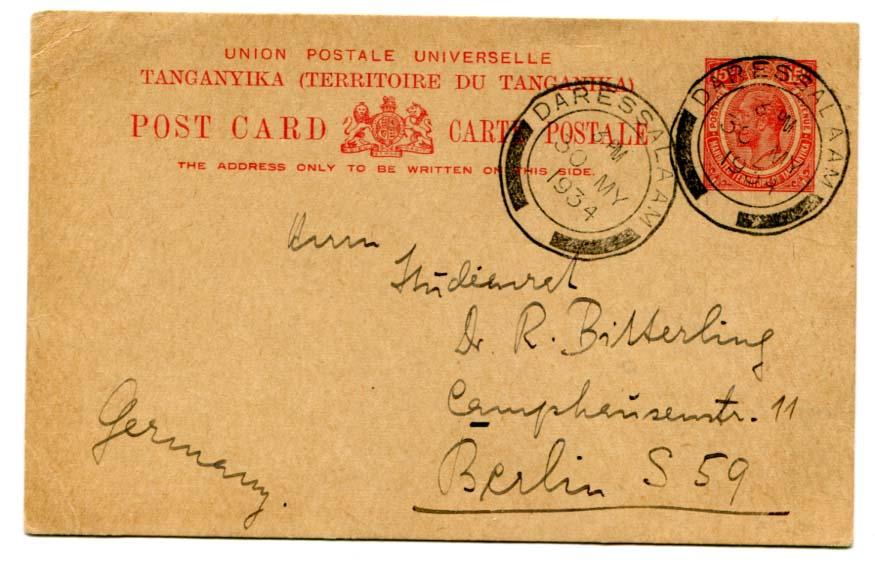 UNION POSTALE UNIVERSELLE
TANGANYIKA (TERRITOIRE DU TANGANIKA)
POST CARD CARTE POSTALE
THE ADDRESS ONLY TO BE WRITTEN ON THIS SIDE.
DARESSALAAM
8 PM
30 MY
1934
DARESSALAAM
PM
30 MY
1934
Herrn
Studienrat
Dr. R. Bitterling
Camphausenstr. 11
Berlin S 59
Germany.